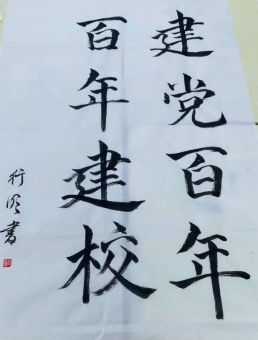 建党百年
百年建校
行明书